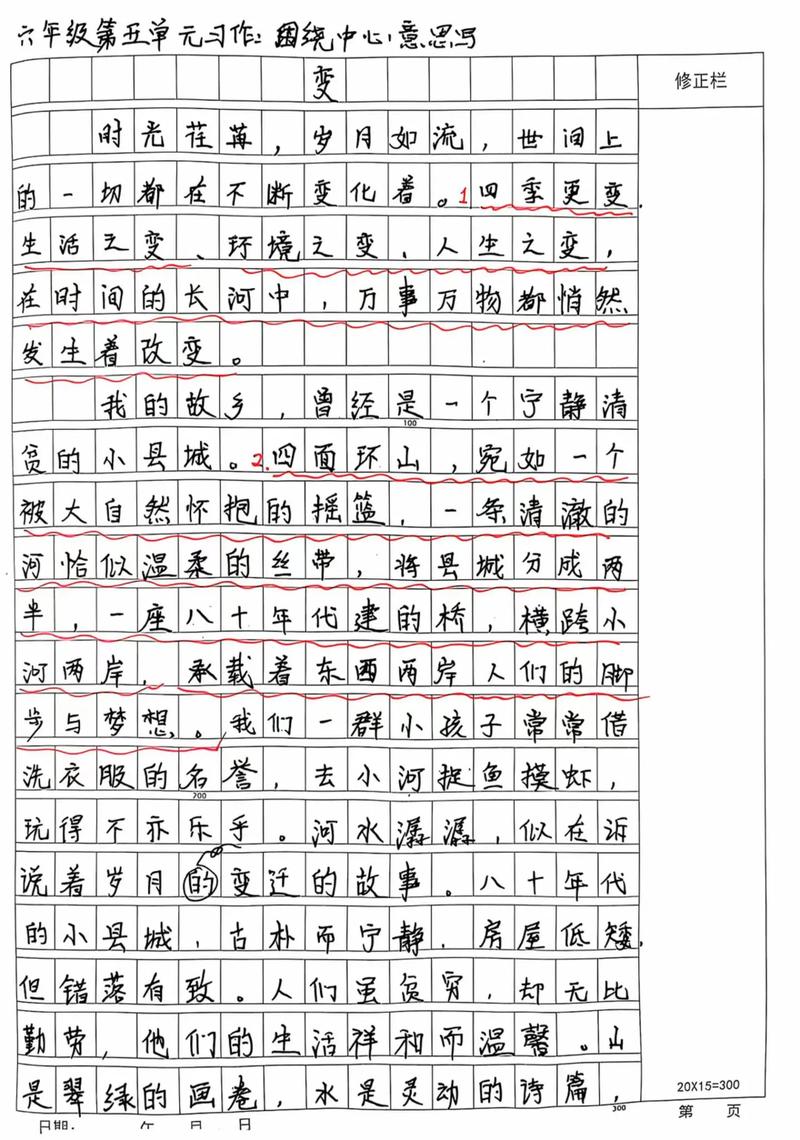 六年级第五单元习作：围绕中心意思写
变
修正栏
时光荏苒，岁月如流，世间上
的一切都在不断变化着。1.四季更变、
生活之变、环境之变、人生之变，
在时间的长河中，万事万物都悄然
发生着改变。
我的故乡，曾经是一个宁静清
100
贫的小县城。2.四面环山，宛如一个
被大自然怀抱的摇篮，一条清澈的
河恰似温柔的丝带，将县城分成两
半，一座八十年代建的桥，横跨小
河两岸，承载着东西两岸人们的脚
步与梦想。我们一群小孩子常常借
洗衣服的名誉，去小河捉鱼摸虾，
200
玩得不亦乐乎。河水潺潺，似在诉
说着岁月的变迁的故事。八十年代
的小县城，古朴而宁静，房屋低矮，
但错落有致。人们虽贫穷，却无比
勤劳，他们的生活祥和而温馨。山
是翠绿的画卷，水是灵动的诗篇，
20X15=300
300
第 页
日期： 年 月 日